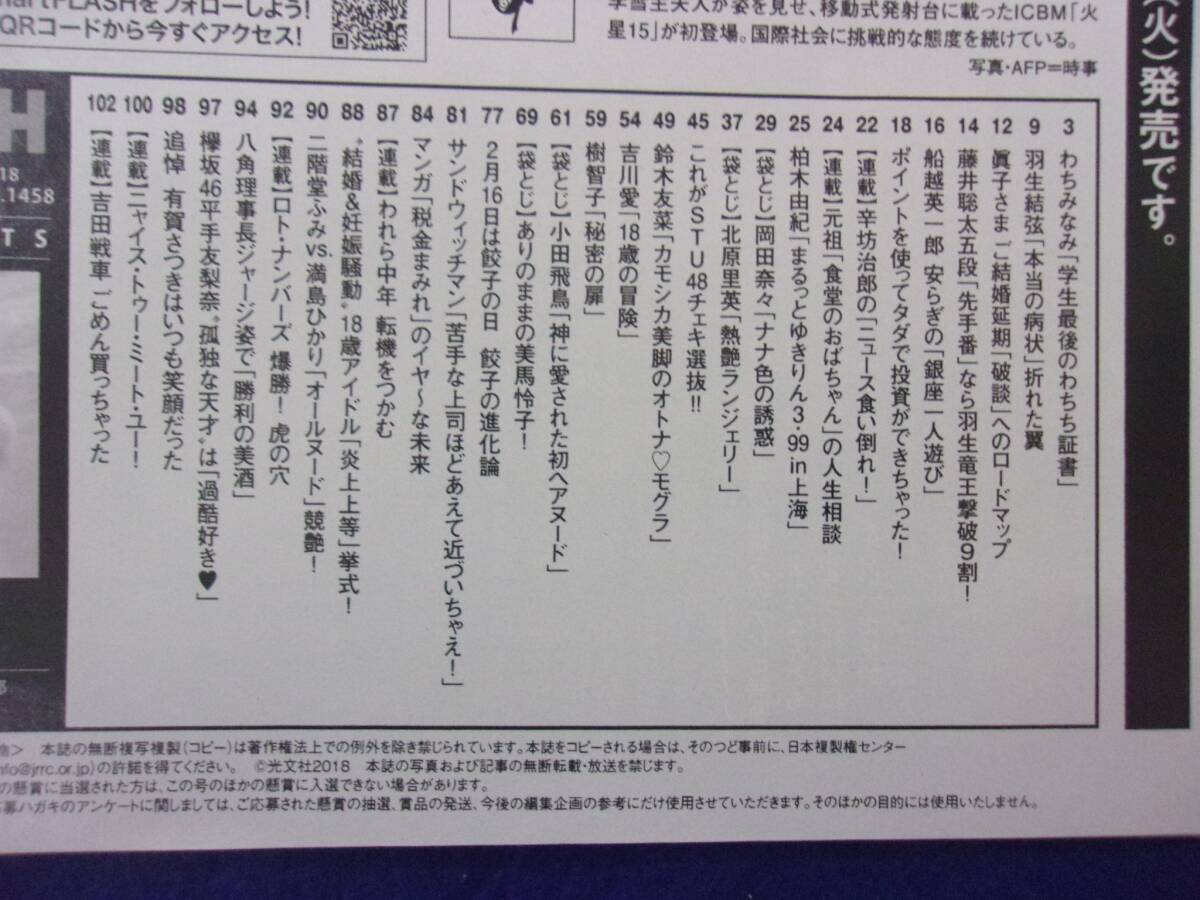 martFLASHをフォローしよう!
QRコードから今すぐアクセス!
李雪主夫人が姿を見せ、移動式発射台に載ったICBM「火
星15」が初登場。国際社会に挑戦的な態度を続けている。
写真・AFP=時事
(火)発売です。
H
18
.1458
T S
3 わちみなみ「学生最後のわちち証書」
9 羽生結弦「本当の病状」折れた翼
12 眞子さま ご結婚延期「破談」へのロードマップ
14 藤井聡太五段「先手番」なら羽生竜王撃破9割!
16 船越英一郎 安らぎの「銀座一人遊び」
18 ポイントを使ってタダで投資ができちゃった!
22 【連載】辛坊治郎の「ニュース食い倒れ!」
24 【連載】元祖「食堂のおばちゃん」の人生相談
25 柏木由紀「まるっとゆきりん3・99in上海」
29 【袋とじ】岡田奈々「ナナ色の誘惑」
37 【袋とじ】北原里英「熱艶ランジェリー」
45 これがSTU48チェキ選抜!!
49 鈴木友菜「カモシカ美脚のオトナ♡モグラ」
54 吉川愛「18歳の冒険」
59 樹智子「秘密の扉」
61 【袋とじ】小田飛鳥「神に愛された初ヘアヌード」
69 【袋とじ】ありのままの美馬怜子!
77 2月16日は餃子の日 餃子の進化論
81 サンドウィッチマン「苦手な上司ほどあえて近づいちゃえ!」
84 マンガ「税金まみれ」のイヤ〜な未来
87 【連載】われら中年 転機をつかむ
88 〝結婚&妊娠騒動〟18歳アイドル「炎上上等」挙式!
90 二階堂ふみvs.満島ひかり「オールヌード」競艶!
92 【連載】ロト・ナンバーズ 爆勝! 虎の穴
94 八角理事長ジャージ姿で「勝利の美酒」
97 欅坂46平手友梨奈〝孤独な天才〟は「過酷好き♥」
98 追悼 有賀さつきはいつも笑顔だった
100 【連載】ニャイス・トゥー・ミート・ユー!
102 【連載】吉田戦車 ごめん買っちゃった
> 本誌の無断複写複製(コピー)は著作権法上での例外を除き禁じられています。本誌をコピーされる場合は、そのつど事前に、日本複製権センター
nfo@jrrc.or.jp)の許諾を得てください。 ©光文社2018 本誌の写真および記事の無断転載・放送を禁じます。
の懸賞に当選された方は、この号のほかの懸賞に入選できない場合があります。
募ハガキのアンケートに関しましては、ご応募された懸賞の抽選、賞品の発送、今後の編集企画の参考にだけ使用させていただきます。そのほかの目的には使用いたしません。